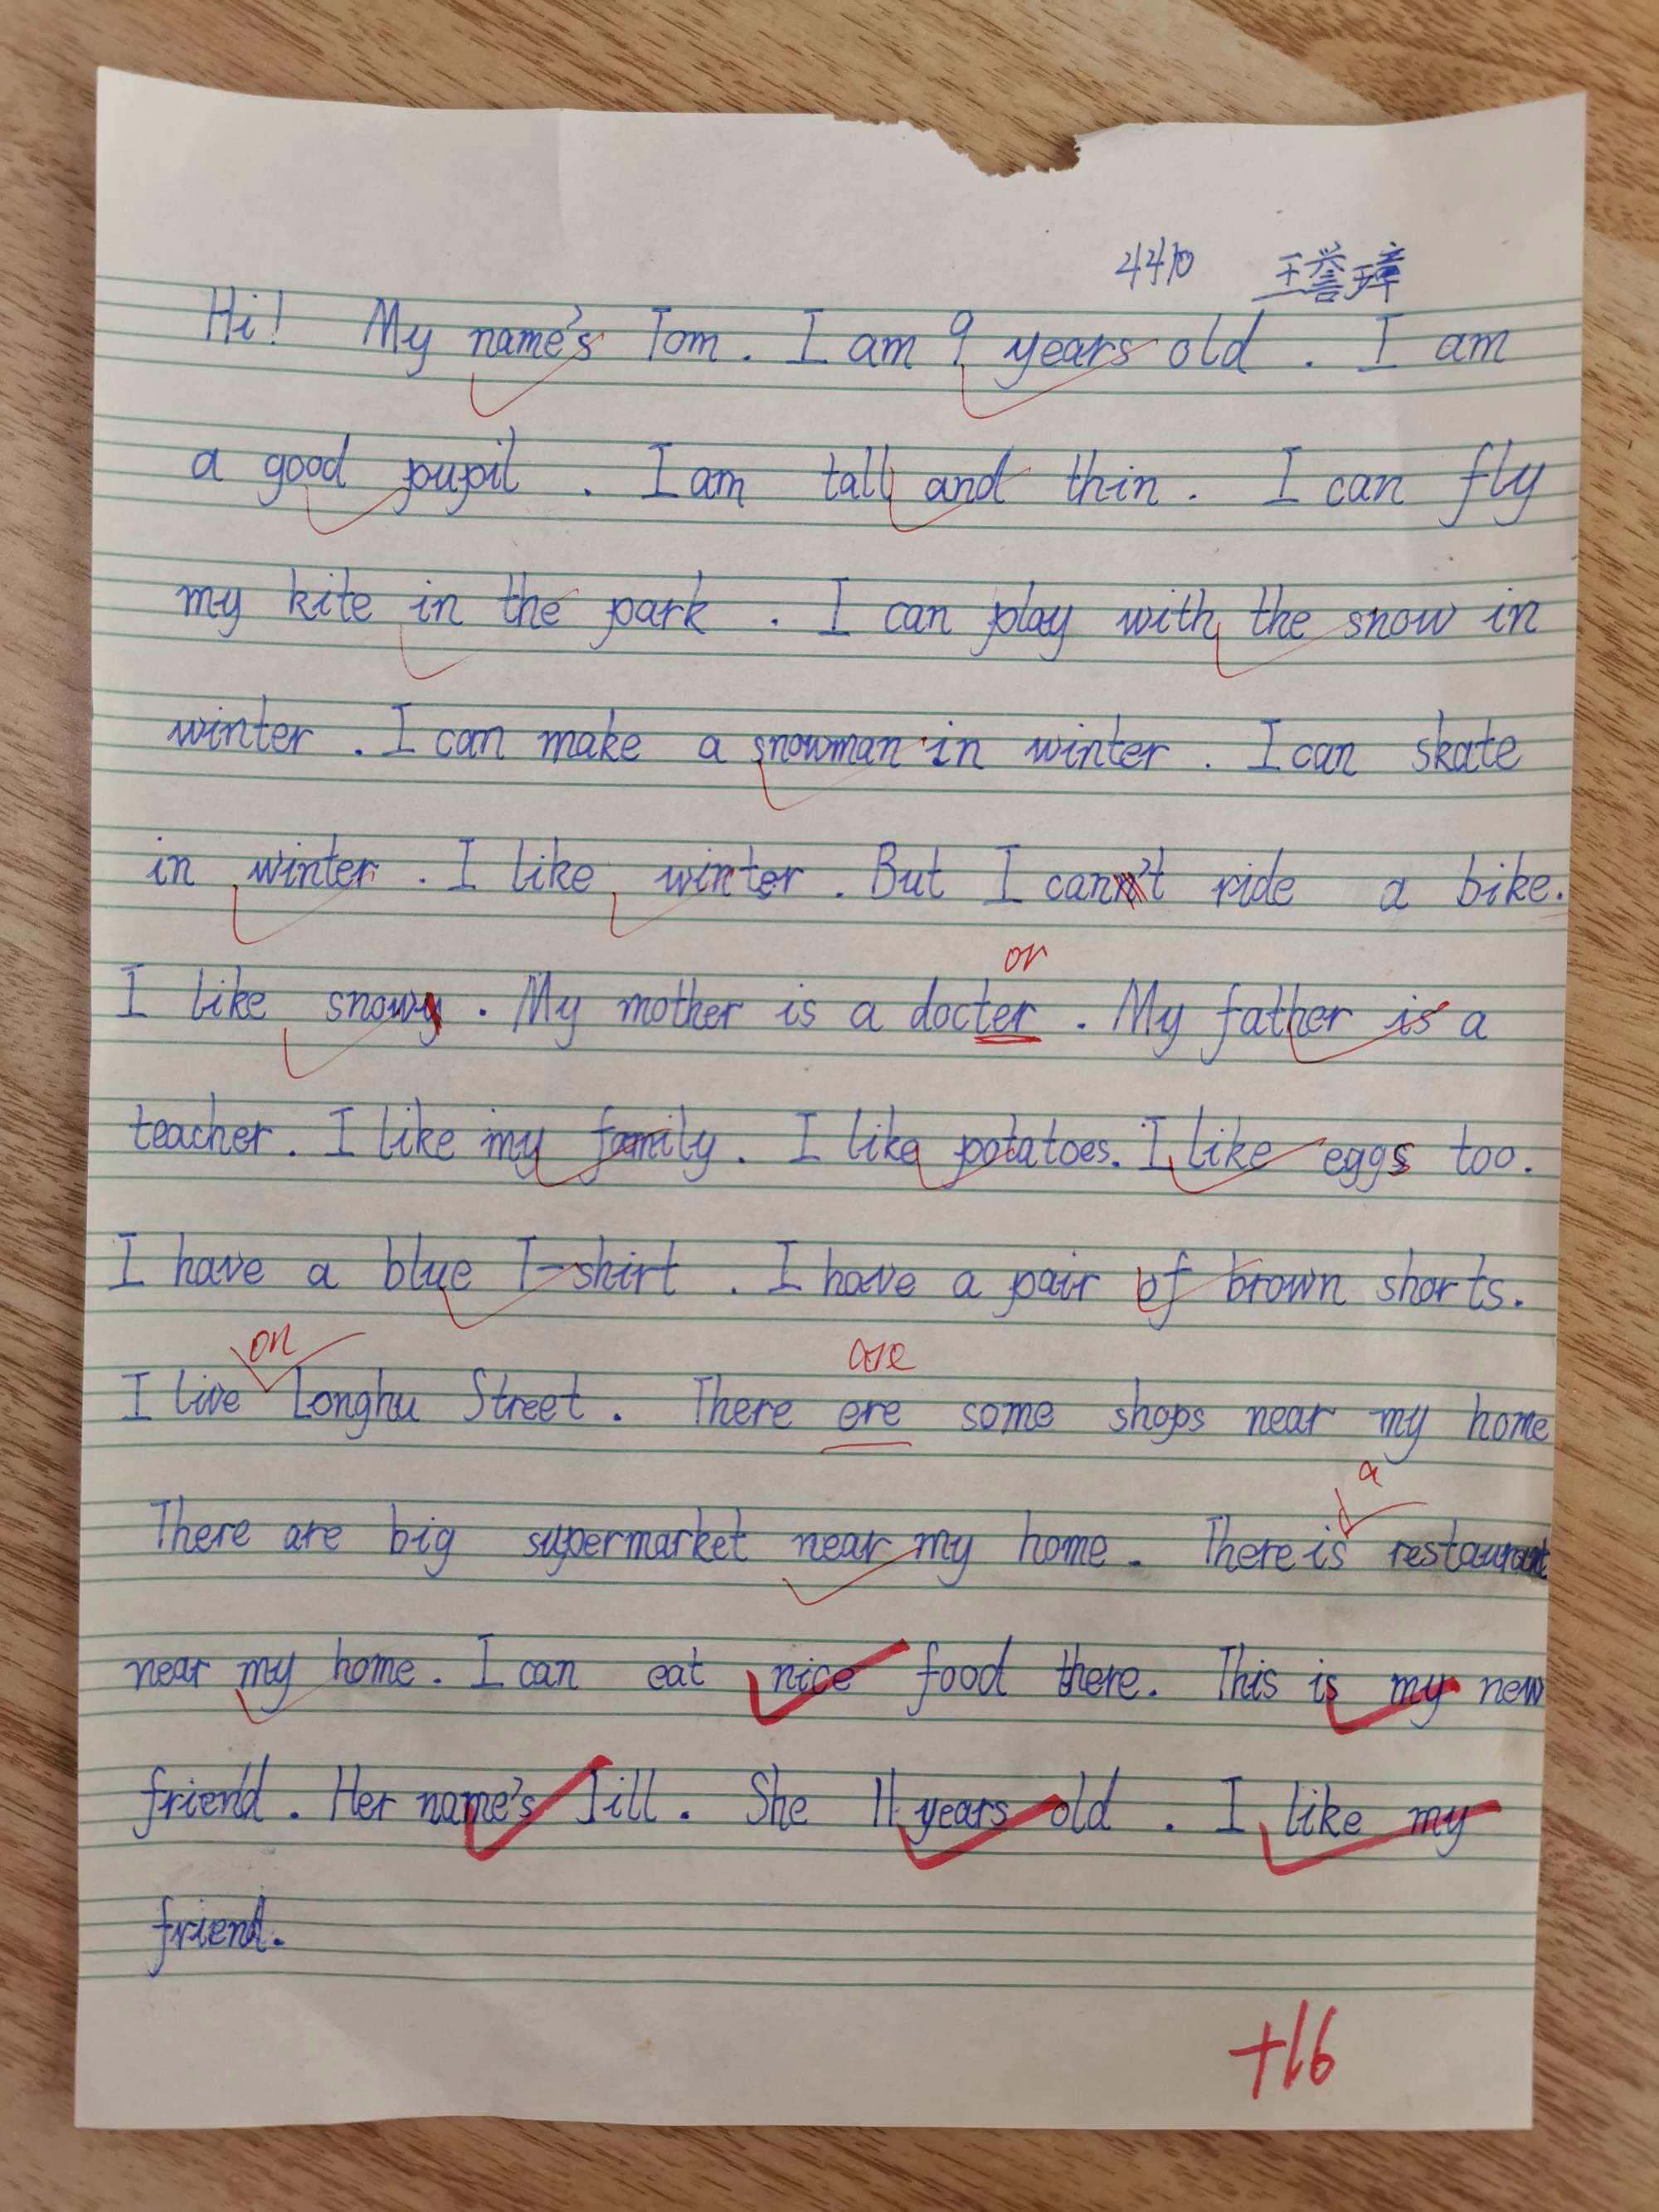 4410 王誉璋
Hi! My name's Tom. I am 9 years old. I am
a good pupil. I am tall and thin. I can fly
my kite in the park. I can play with the snow in
winter. I can make a snowman in winter. I can skate
in winter. I like winter. But I can't ride a bike.
or
I like snow. My mother is a docter. My father is a
teacher. I like my family. I like potatoes. I like eggs too.
I have a blue T-shirt. I have a pair of brown shorts.
on are
I live Longhu Street. There ere some shops near my home
a
There are big supermarket near my home. There is restaurant
near my home. I can eat nice food there. This is my new
friend. Her name's Jill. She 11 years old. I like my
friend.
+16